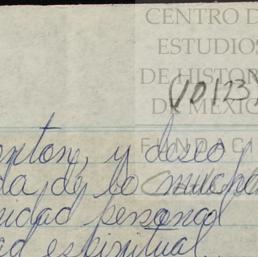 CENTRO D
ESTUDIOS
DE HISTOR
DE MEXIC
FUNDACI
(10123)
y deseo
da, de lo mucho
nidad personal
ad espiritual